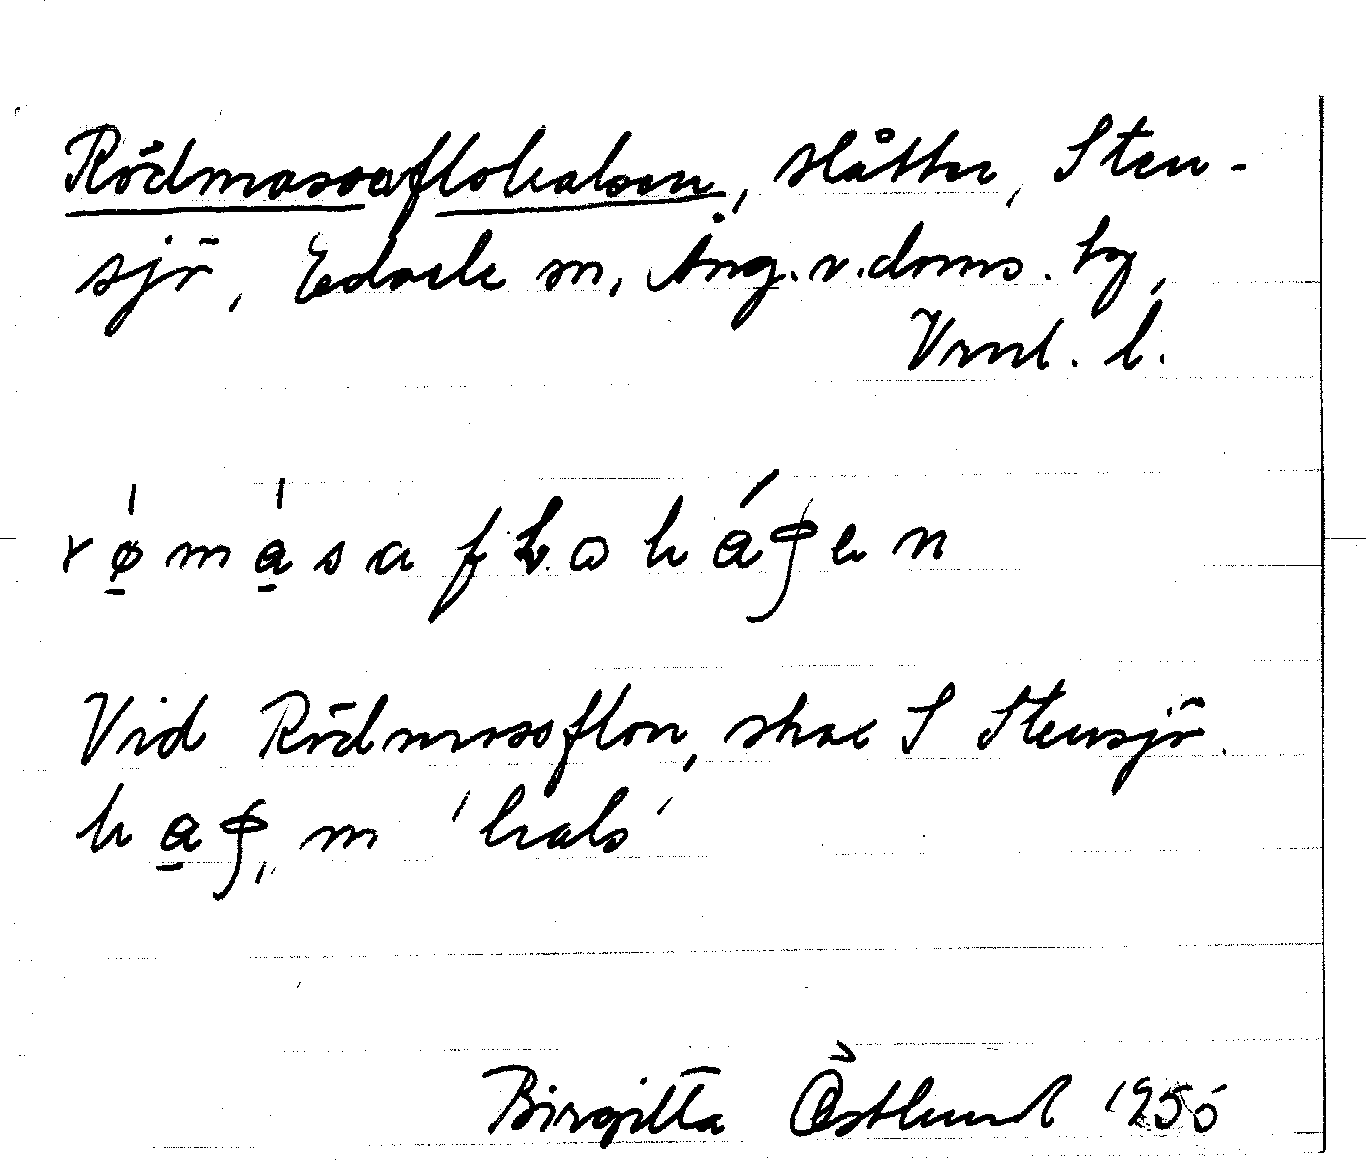 Rödmossaflohalsen, slåtter, Sten-
sjö, Edsele sn, Ång. v. doms. hg,
Vrnl. l.
Vid Rödmossflon, skae S Stensjö
m 'hals'
Birgitta Östlund 1955